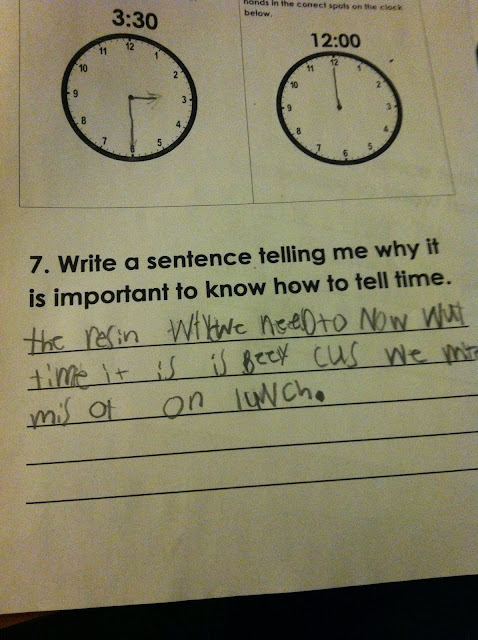 hands in the correct spots on the clock
below.
3:30
12:00
12
1
2
3
4
5
6
7
8
9
10
11
12
1
2
3
4
5
6
7
8
9
10
11
7. Write a sentence telling me why it
is important to know how to tell time.
the resin we neeD to Now wut
time it is is Beck cus we
mis ot on luNch.